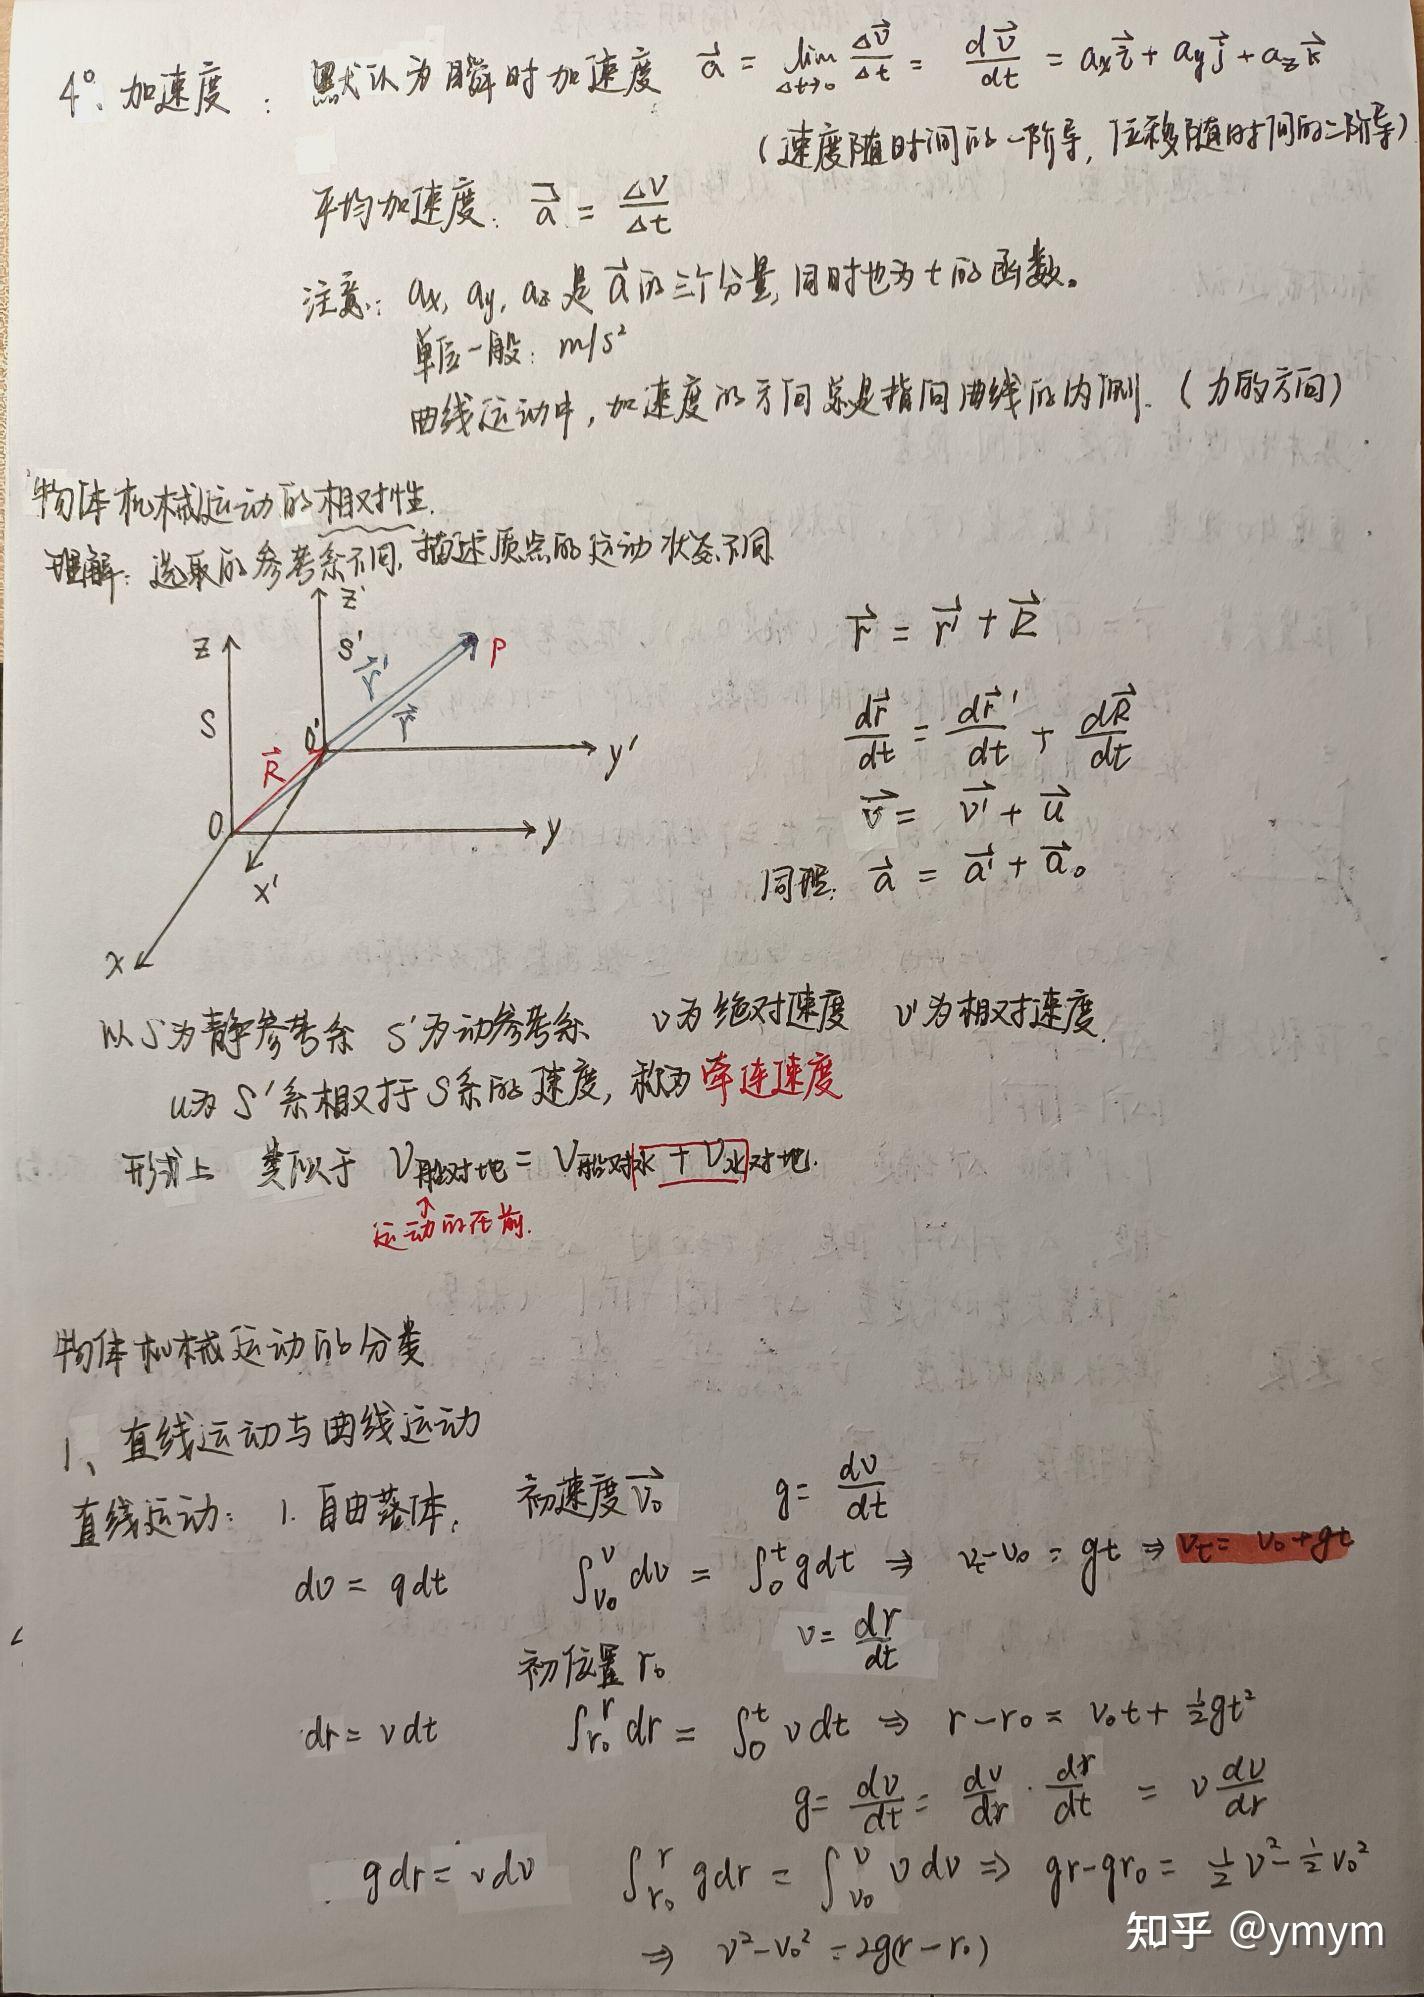 4°、加速度：默认为瞬时加速度 \vec{a} = \lim_{Δt→0} \frac{Δ\vec{v}}{Δt} = \frac{d\vec{v}}{dt} = a_x\vec{i} + a_y\vec{j} + a_z\vec{k}
(速度随时间的一阶导, 位移随时间的二阶导)
平均加速度：\vec{a} = \frac{ΔV}{Δt}
注意：a_x, a_y, a_z 是 \vec{a} 的三个分量, 同时也为 t 的函数。
单位一般：m/s²
曲线运动中，加速度的方向总是指向曲线的内侧.（力的方向）
物体机械运动的相对性.
理解：选取的参考系不同, 描述质点的运动状态不同
Z S O y x
Z' S' O' y' x'
\vec{R} \vec{r'} \vec{r} P
\vec{r} = \vec{r'} + \vec{R}
\frac{d\vec{r}}{dt} = \frac{d\vec{r}'}{dt} + \frac{d\vec{R}}{dt}
\vec{v} = \vec{v'} + \vec{u}
同理. \vec{a} = \vec{a'} + \vec{a}_0
以S为静参考系 S'为动参考系 v为绝对速度 v'为相对速度.
u为S'系相对于S系的速度, 称为牵连速度
形式上 类似于 V船对地 = V船对水 + V水对地.
↑
运动的在前.
物体机械运动的分类
1、直线运动与曲线运动
直线运动：1. 自由落体, 初速度\vec{v_0} g = \frac{dv}{dt}
dv = gdt ∫_{v_0}^{v} dv = ∫_0^t gdt ⇒ v_t-v_0 = gt ⇒ v_t = v_0+gt
初位置 r_0 v = \frac{dr}{dt}
dr = vdt ∫_{r_0}^{r} dr = ∫_0^t vdt ⇒ r-r_0 = v_0t + ½gt²
g = \frac{dv}{dt} = \frac{dv}{dr} · \frac{dr}{dt} = v\frac{dv}{dr}
gdr = vdv ∫_{r_0}^{r} gdr = ∫_{v_0}^{v} vdv ⇒ gr-gr_0 = ½v²-½v_0²
⇒ v²-v_0² = 2g(r-r_0)
知乎 @ymym